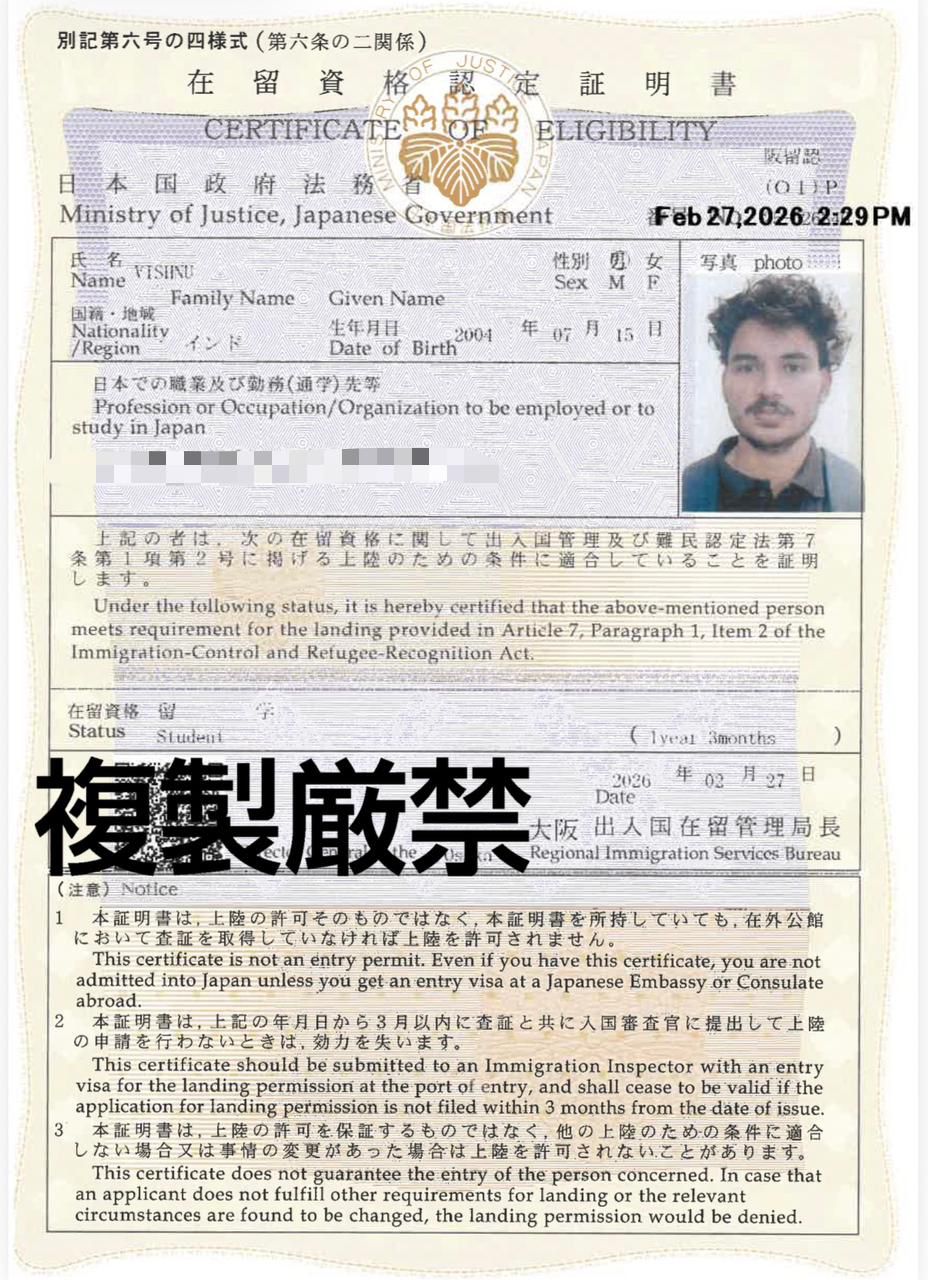 別記第六号の四様式(第六条の二関係)
在留資格認定証明書
CERTIFICATE OF ELIGIBILITY
MINISTRY OF JUSTICE JAPAN
阪留認
日本国政府法務省
(O1)P
Ministry of Justice, Japanese Government
Feb 27,2026 2:29 PM
氏名 VISHNU 性別 男 女 写真 photo
Name Family Name Given Name Sex M F
国籍・地域 生年月日 2004 年 07 月 15 日
Nationality /Region インド Date of Birth
日本での職業及び勤務(通学)先等
Profession or Occupation/Organization to be employed or to
study in Japan
上記の者は、次の在留資格に関して出入国管理及び難民認定法第7
条第1項第2号に掲げる上陸のための条件に適合していることを証明
します。
Under the following status, it is hereby certified that the above-mentioned person
meets requirement for the landing provided in Article 7, Paragraph 1, Item 2 of the
Immigration-Control and Refugee-Recognition Act.
在留資格 留学
Status Student ( 1year 3months )
2026 年 02 月 27 日
Date
複製厳禁
大阪 出入国在留管理局長
General the Osaka Regional Immigration Services Bureau
(注意) Notice
1 本証明書は、上陸の許可そのものではなく、本証明書を所持していても、在外公館
において査証を取得していなければ上陸を許可されません。
This certificate is not an entry permit. Even if you have this certificate, you are not
admitted into Japan unless you get an entry visa at a Japanese Embassy or Consulate
abroad.
2 本証明書は、上記の年月日から3月以内に査証と共に入国審査官に提出して上陸
の申請を行わないときは、効力を失います。
This certificate should be submitted to an Immigration Inspector with an entry
visa for the landing permission at the port of entry, and shall cease to be valid if the
application for landing permission is not filed within 3 months from the date of issue.
3 本証明書は、上陸の許可を保証するものではなく、他の上陸のための条件に適合
しない場合又は事情の変更があった場合は上陸を許可されないことがあります。
This certificate does not guarantee the entry of the person concerned. In case that
an applicant does not fulfill other requirements for landing or the relevant
circumstances are found to be changed, the landing permission would be denied.